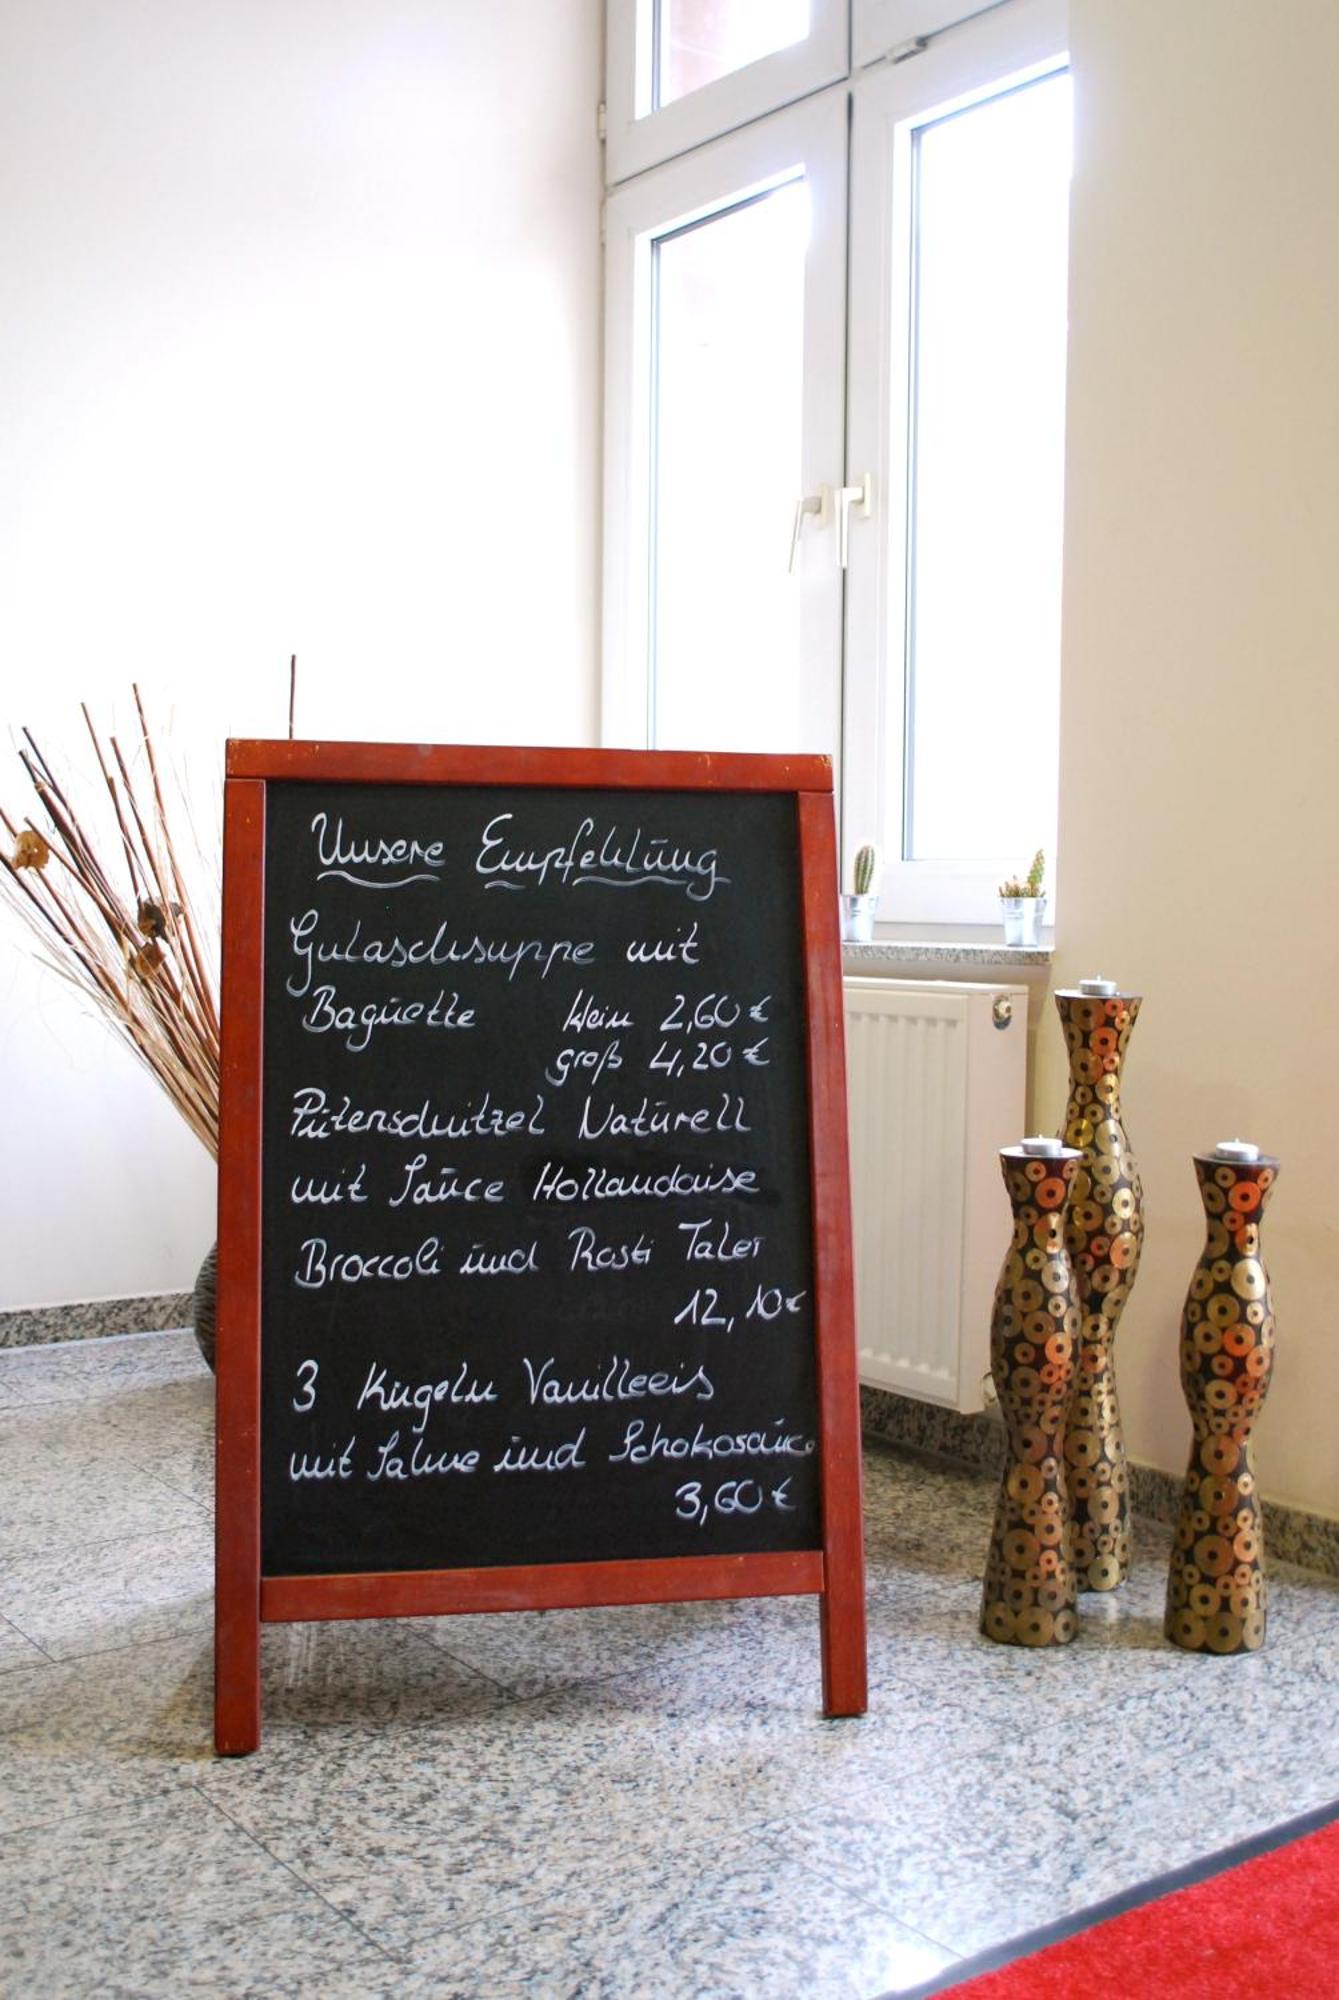 Unsere Empfehlung
Gulaschsuppe mit
Baguette klein 2,60 €
groß 4,20 €
Putenschnitzel Naturell
mit Sauce Hollandaise
Broccoli und Rösti Taler
12,10 €
3 Kugeln Vanilleeis
mit Sahne und Schokosauce
3,60 €